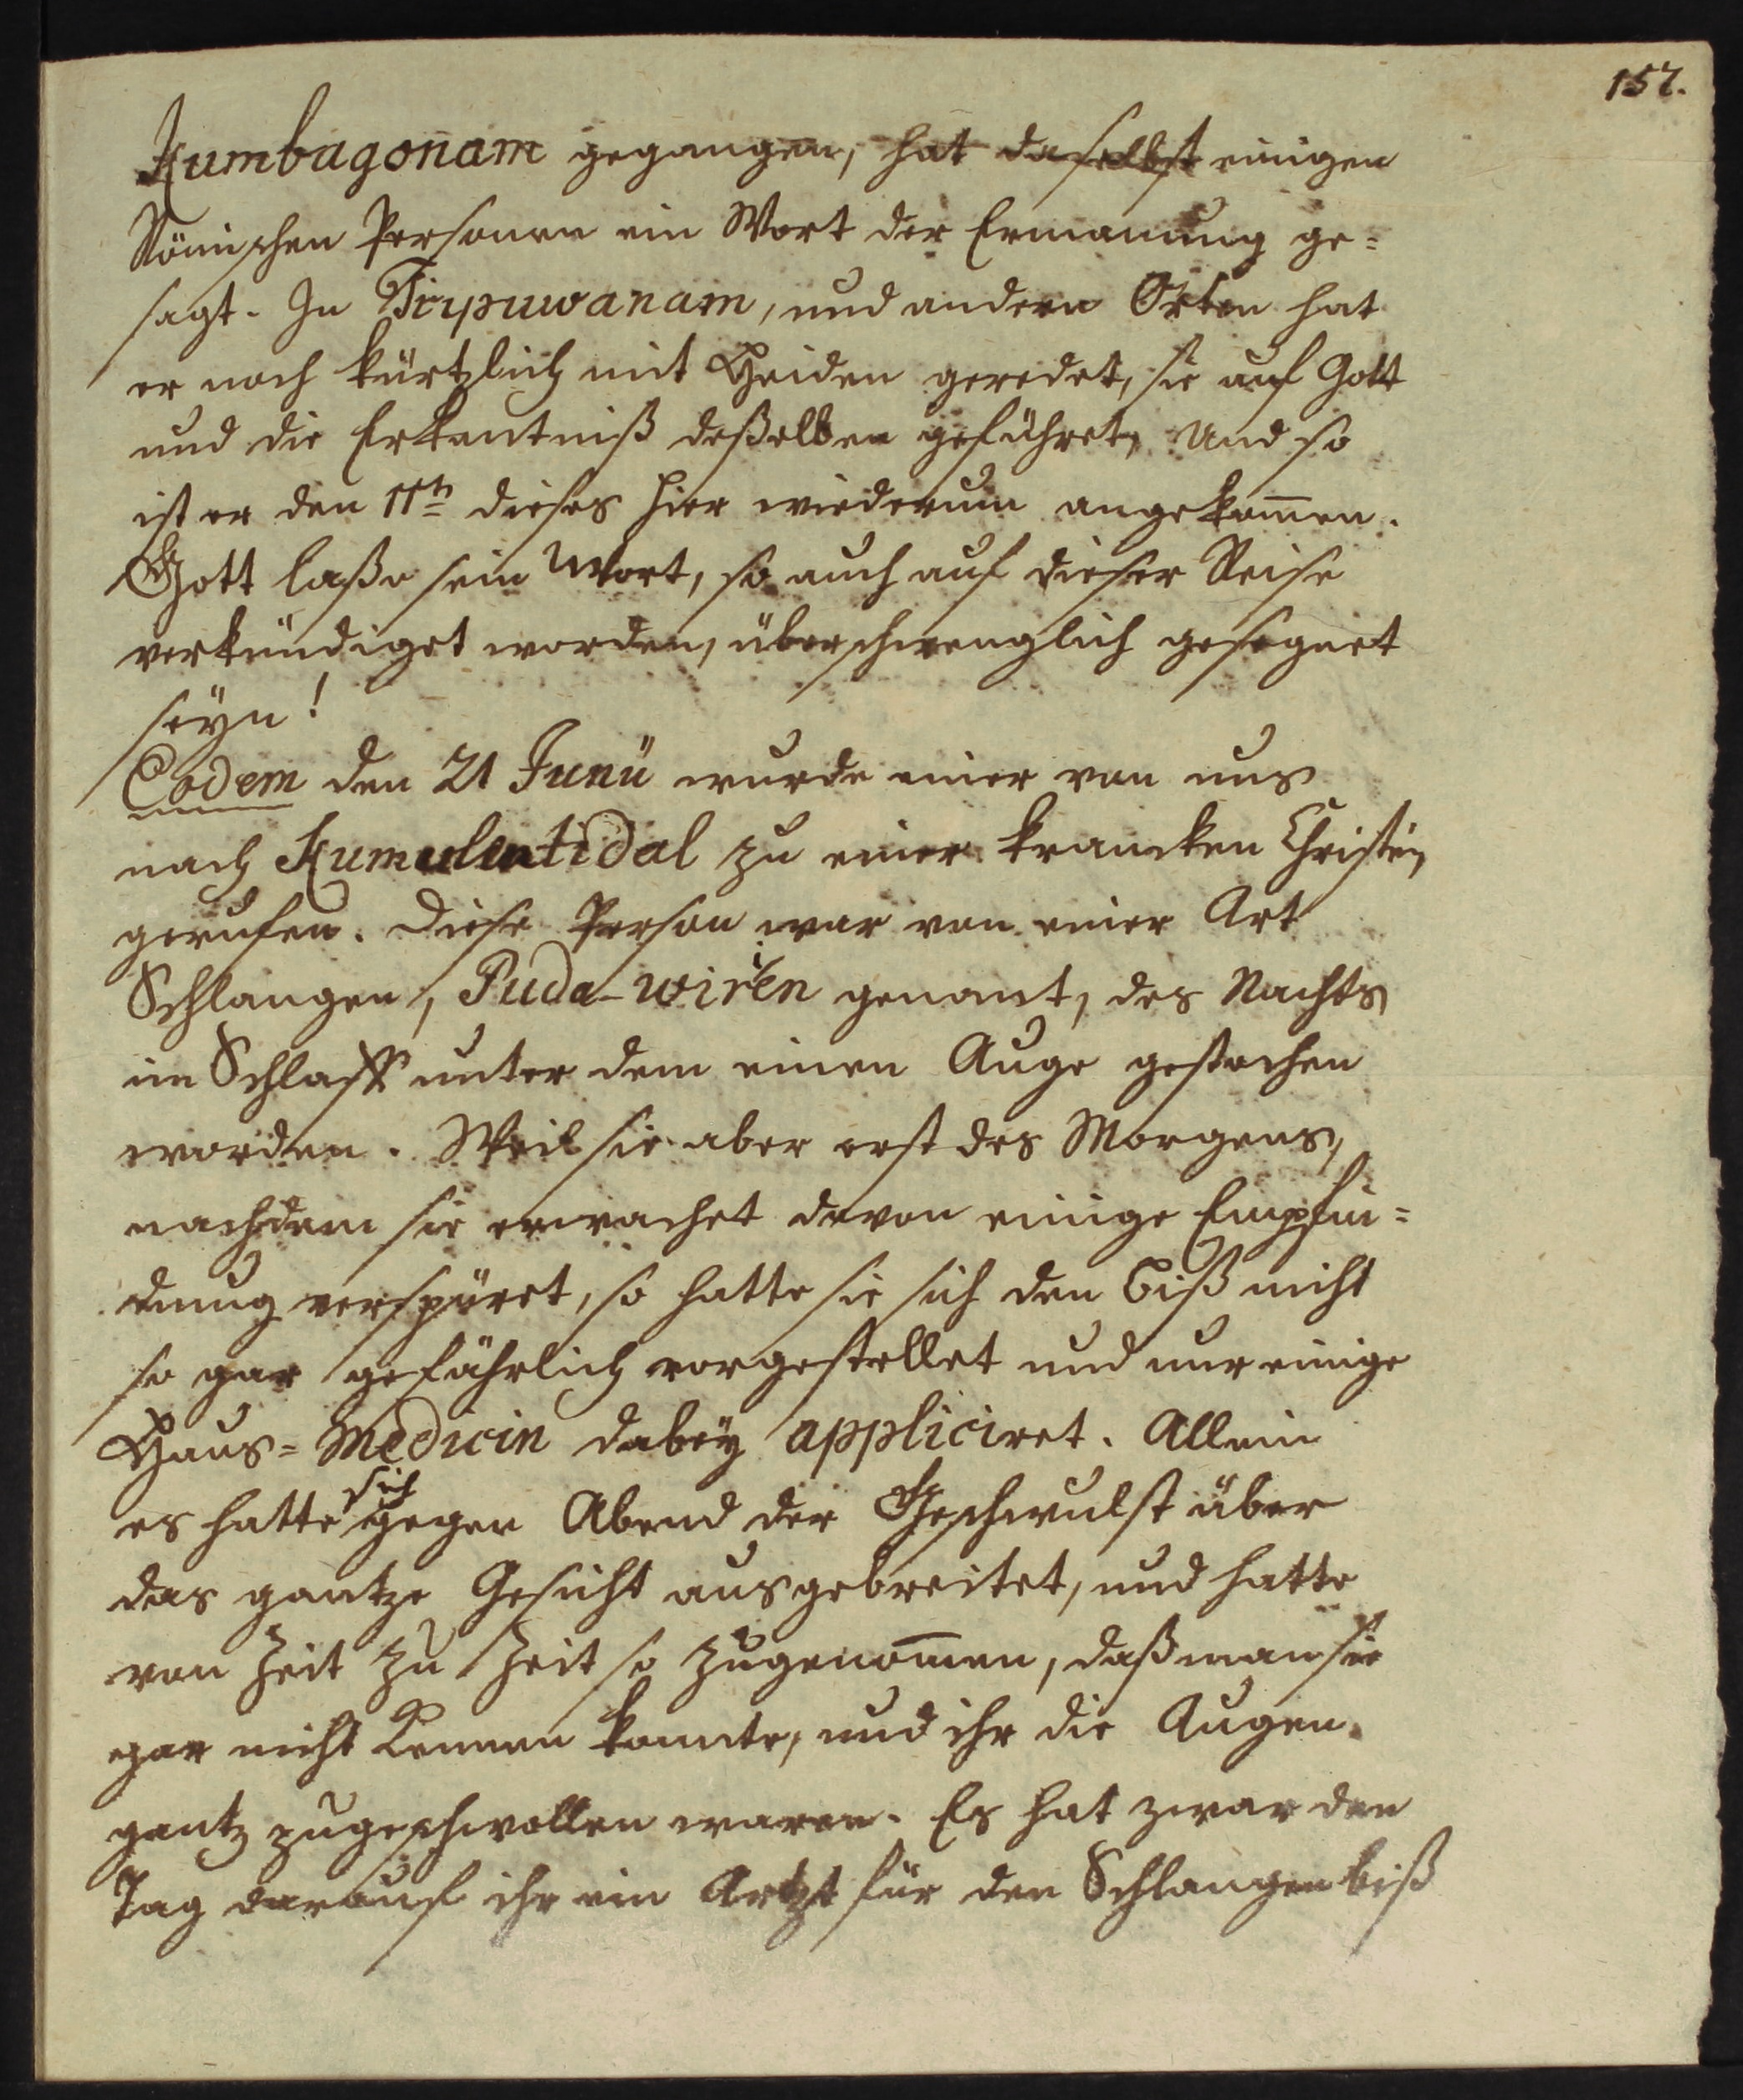 157.
Kumbagonam gegangen, hat daselbst einigen
Römischen Personen ein Wort der Ermanung ge=
sagt. In Tirpuwanam, und andern Orten hat
er noch kürtzlich mit Heiden geredet, sie auf Gott
und die Erkentniß deßelben geführet, Und so
ist er den 11tn dieses hier wiederum angekom̄en.
Gott laße sein Wort, so auch auf dieser Reise
verkündiget worden, überschwenglich gesegnet
seÿn!
Eodem den 21 Junii wurde einer von uns
nach Kumulentidal zu einer krancken Christin
gerufen. Diese Person war von einer Art
Schlangen, Puda-wirien genant, des Nachts
im Schlaff unter dem einen Auge gestochen
worden. Weil sie aber erst des Morgens,
nachdem sie erwachet davon einige Empfin=
dung verspüret, so hatte sie sich den Biß nicht
so gar gefährlich vorgestellet und nur einige
Haus=Medicin dabeÿ appliciret. Allein
es hatte sich gegen Abend der Geschwulst über
das gantze Gesicht ausgebreitet, und hatte
von Zeit zu Zeit so zugenom̄en, daß man sie
gar nicht kennen konnte, und ihr die Augen
gantz zugeschwollen waren. Es hat zwar den
Tag darauf ihr ein Artzt für den Schlangenbiß